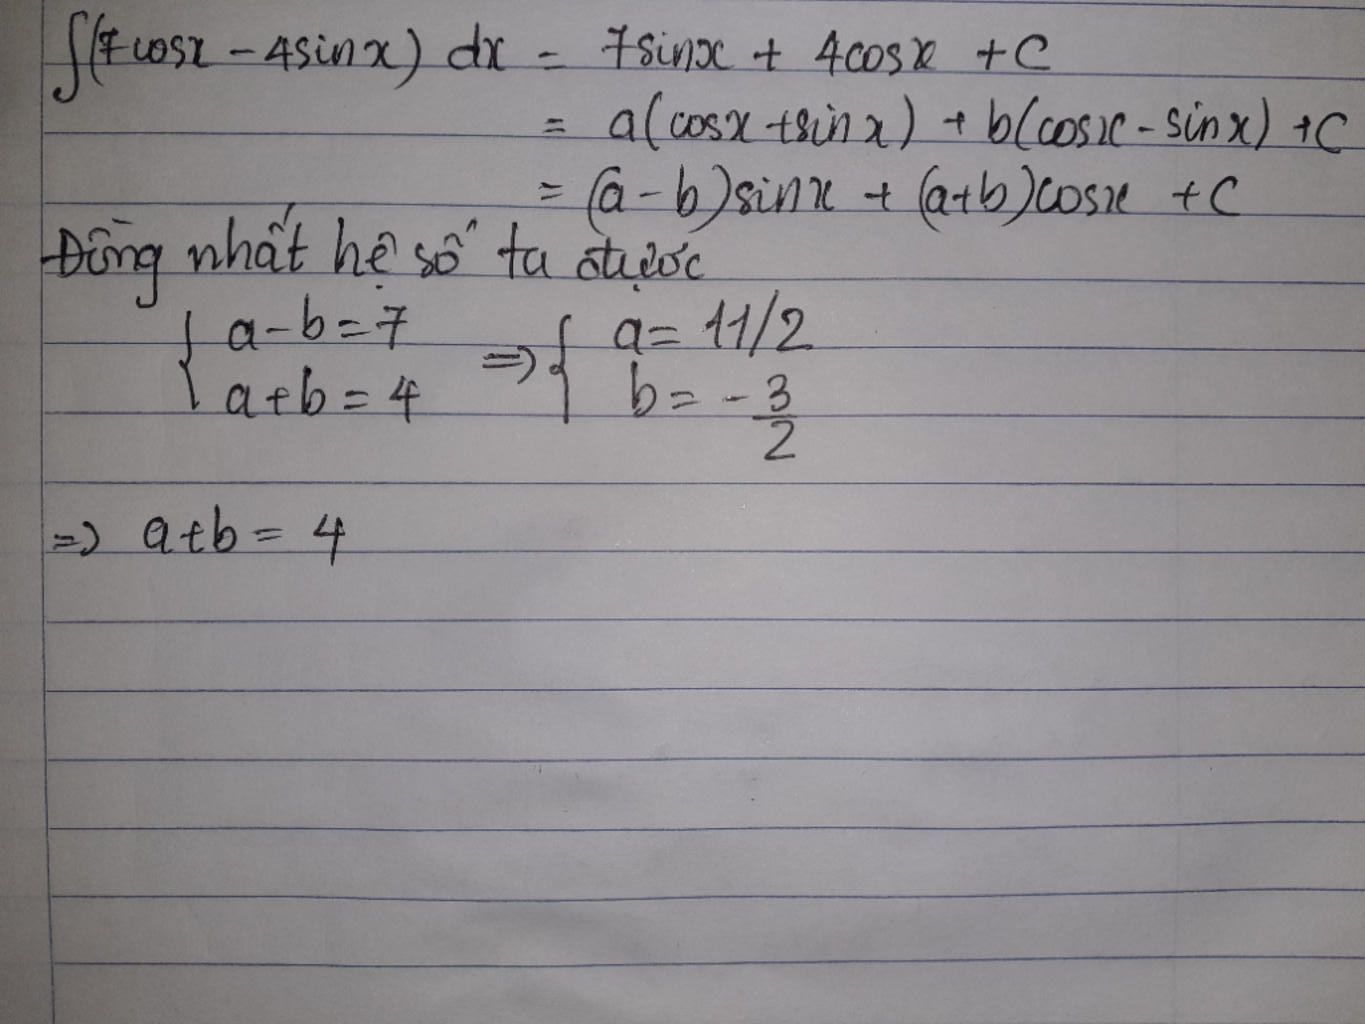 ∫(7cosx - 4sinx) dx = 7sinx + 4cosx + C
= a(cosx + sinx) + b(cosx - sinx) + C
= (a - b)sinx + (a+b)cosx + C
Đồng nhất hệ số ta được
{ a - b = 7 ⇒ { a = 11/2
{ a + b = 4 { b = - 3/2
=> a + b = 4